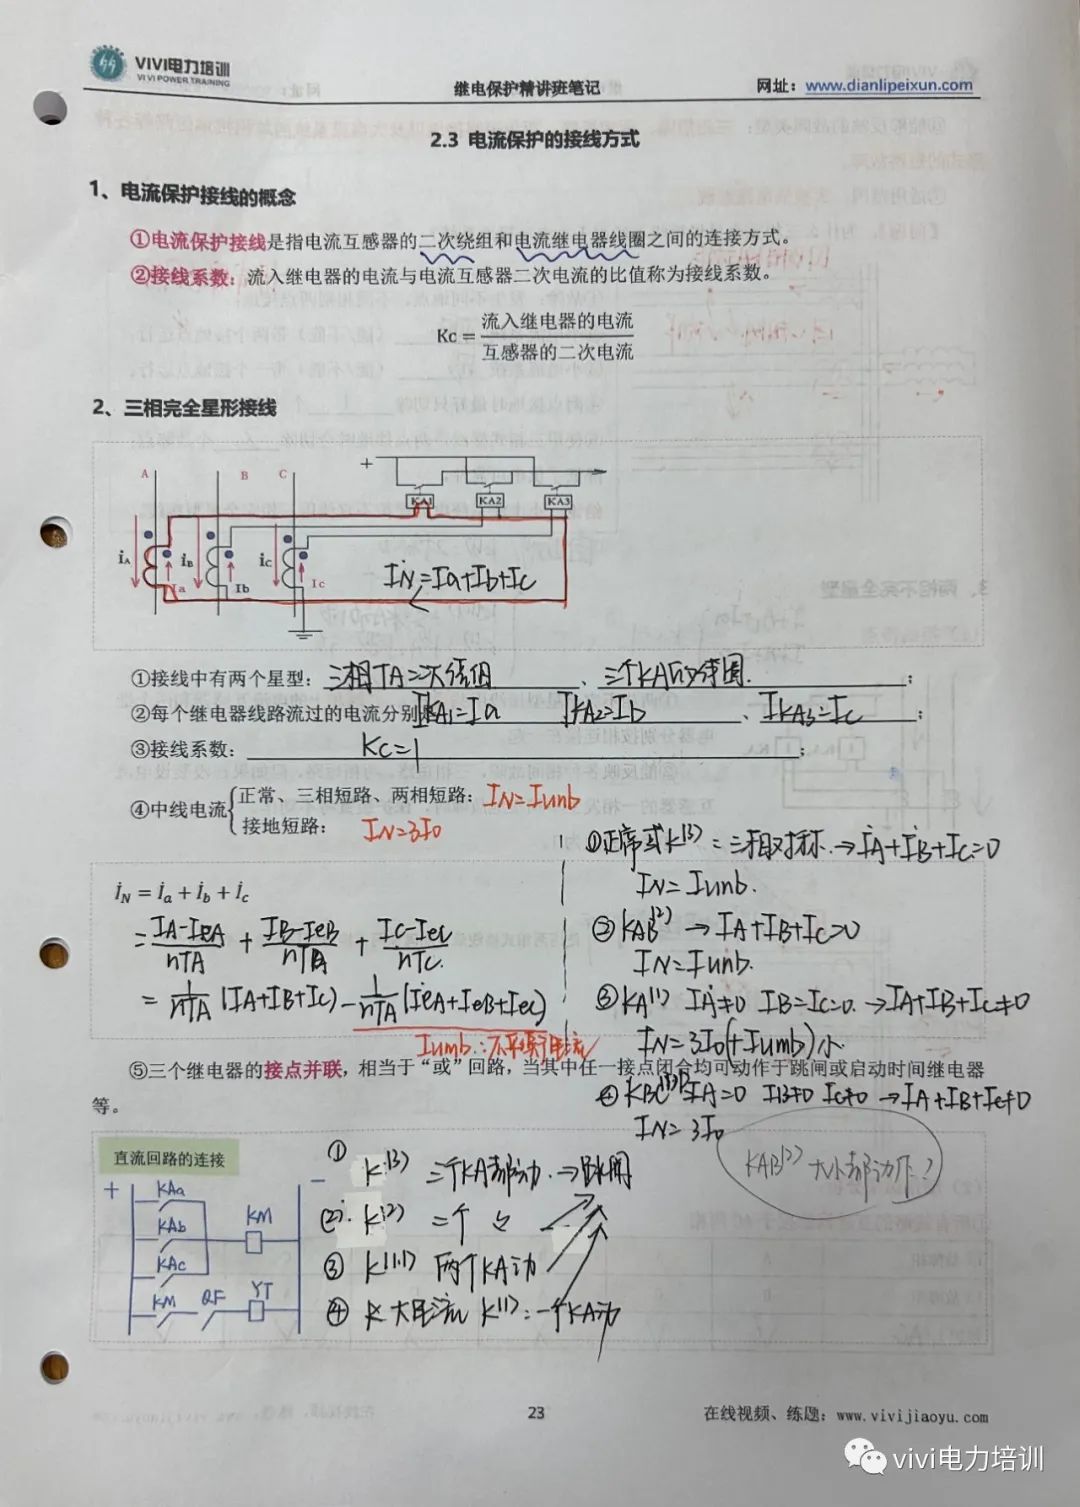 VIVI电力培训
VIVI POWER TRAINING
继电保护精讲班笔记
网址：www.dianlipeixun.com
2.3 电流保护的接线方式
1、电流保护接线的概念
①电流保护接线是指电流互感器的二次绕组和电流继电器线圈之间的连接方式。
②接线系数：流入继电器的电流与电流互感器二次电流的比值称为接线系数。
Kc=流入继电器的电流/互感器的二次电流
2、三相完全星形接线
A B C
+
KA1 KA2 KA3
İA İB İC
Ia Ib Ic
İN=Ia+Ib+Ic
①接线中有两个星型：三相TA二次绕组、三个KA的线圈.；
②每个继电器线路流过的电流分别 IKA1=Ia IKA2=Ib、IKA3=Ic；
③接线系数：Kc=1；
④中线电流
正常、三相短路、两相短路：IN=Iunb
接地短路：IN=3I0
İN = İa + İb + İc
=IA-IeA/nTA + IB-IeB/nTA + IC-IeC/nTC.
=1/nTA(IA+IB+IC)-1/nTA(IeA+IeB+IeC)
Iumb:不平衡电流
①正常或K(3)=三相对称.→İA+İB+İC=0
IN=Iunb.
②KAB(2) →IA+IB+IC=0
IN=Iunb.
③KA(1) IA≠0 IB=IC=0.→IA+IB+IC≠0
IN=3I0(+Iumb)小.
④KBC(1,1) IA=0 IB≠0 IC≠0 →IA+IB+IC≠0
IN=3I0
⑤三个继电器的接点并联，相当于“或”回路，当其中任一接点闭合均可动作于跳闸或启动时间继电器
等。
KAB(2) 大小都动作？
直流回路的连接
+ -
KAa
KAb
KAc
KM
KM QF YT
① K(3) 三个KA都动.→跳闸
② K(2) 二个
③ K(1,1) 两个KA动
④ 大电流 K(1):一个KA动
23
在线视频、练题：www.vivijiaoyu.com
vivi电力培训